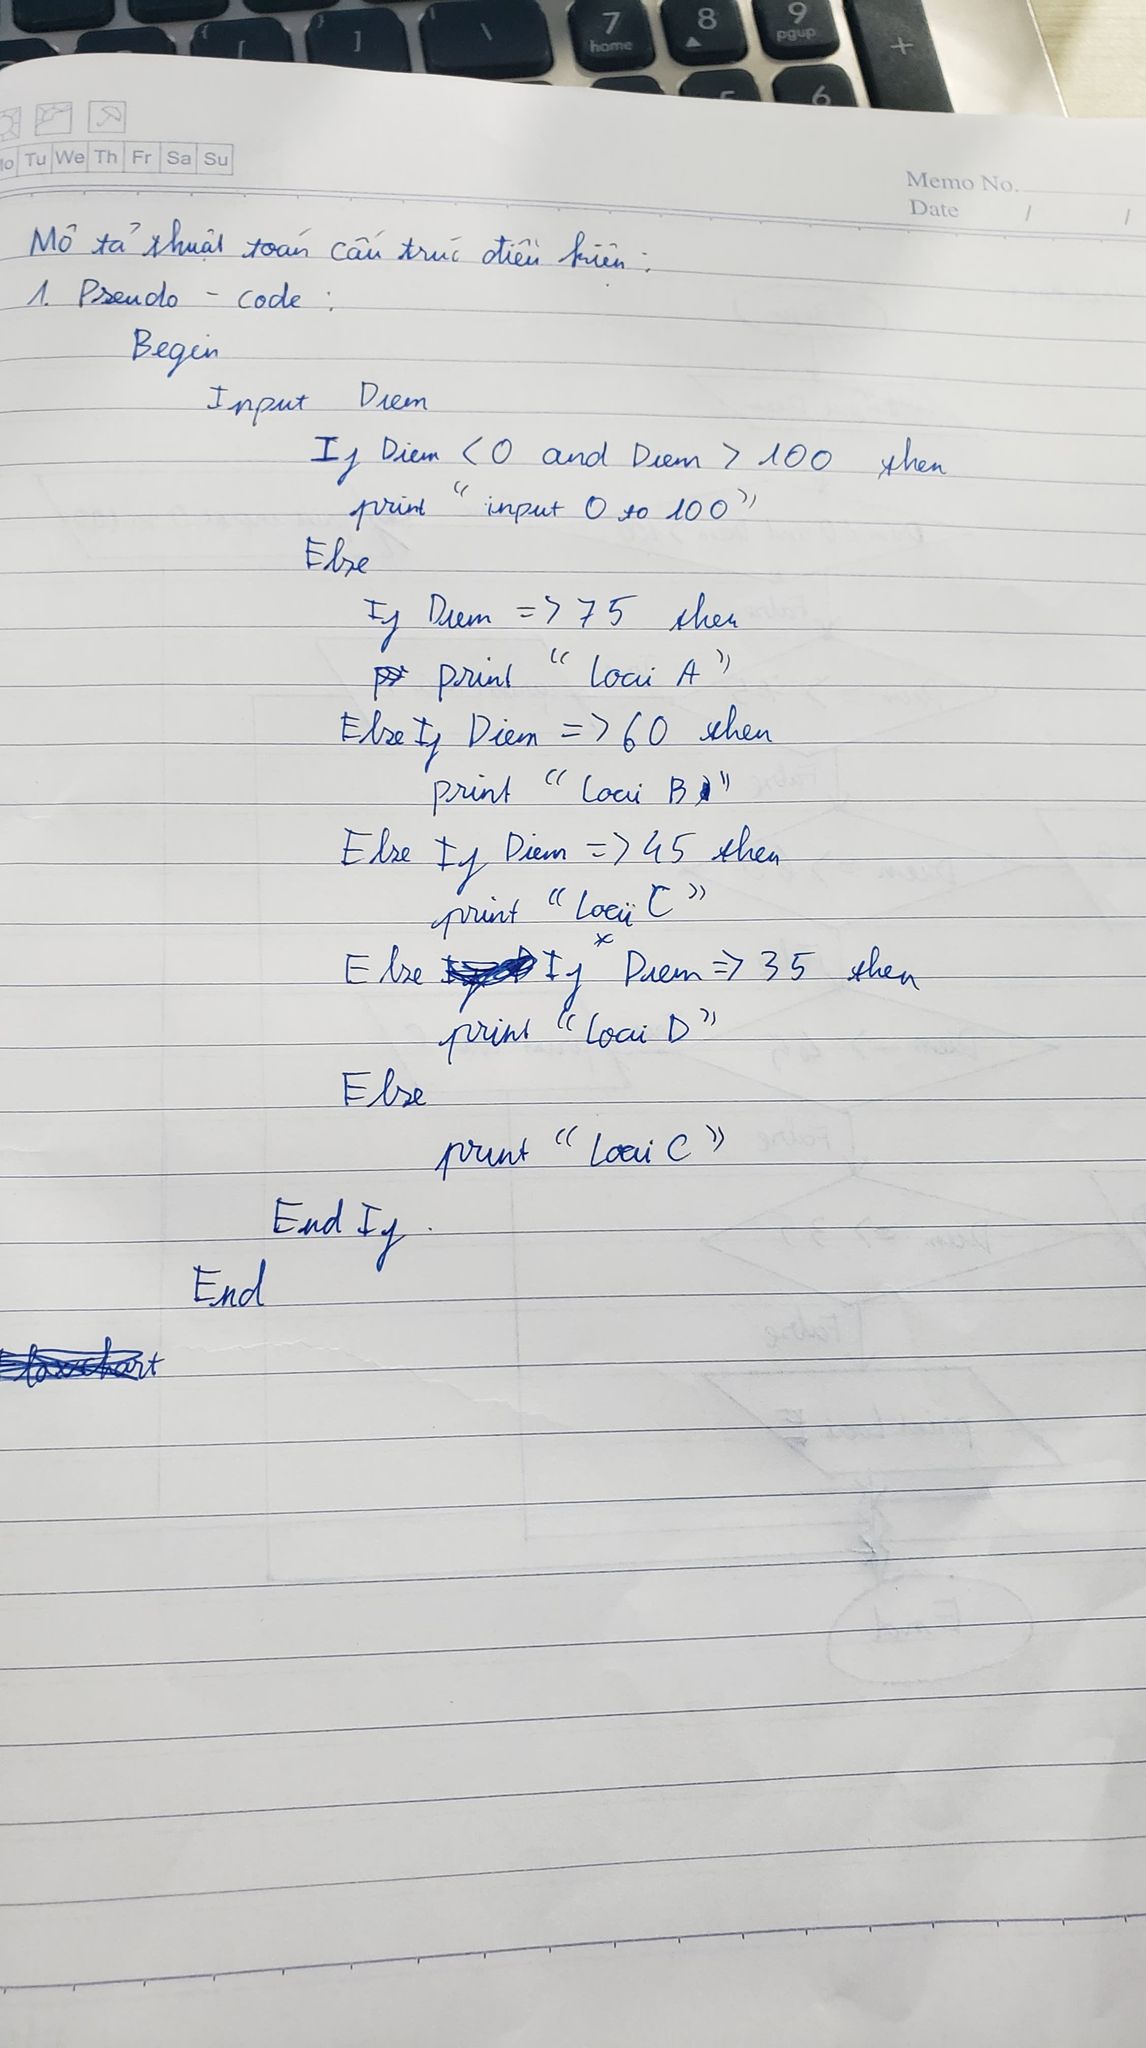 7 home
8
9 pgup
+
[
]
\
6
Mo Tu We Th Fr Sa Su
Memo No.
Date / /
Mô tả thuật toán cấu trúc điều kiện:
1. Pseudo - code:
Begin
Input Diem
If Diem < 0 and Diem > 100 then
print "input 0 to 100"
Else
If Diem => 75 then
print "Loai A"
Else If Diem => 60 then
print "Loai B"
Else If Diem => 45 then
print "Loai C"
Else If Diem => 35 then
print "Loai D"
Else
print "Loai C"
End If.
End